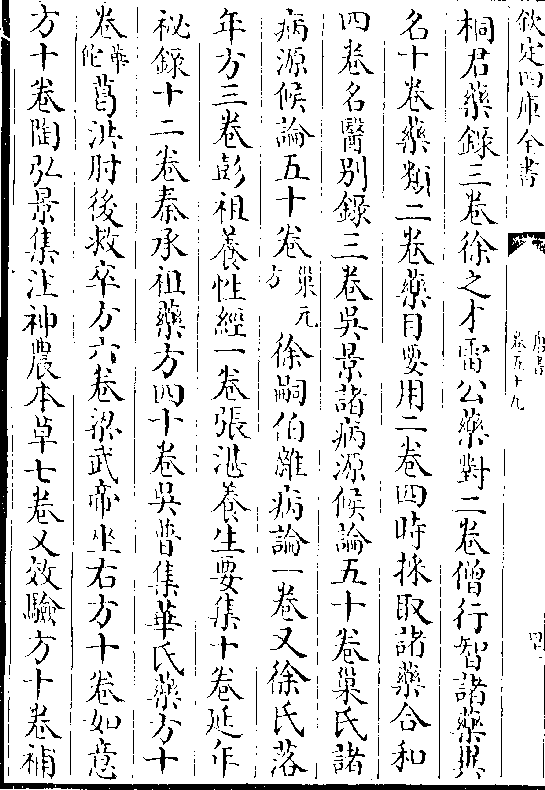 欽定四庫全書
唐書
卷五十九
四
桐君藥錄三卷徐之才雷公藥對二卷僧行智諸藥異
名十卷藥類二卷藥目要用二卷四時採取諸藥合和
四卷名醫別錄三卷吳景諸病源候論五十卷巢氏諸
病源候論五十卷巢元方徐嗣伯雜病論一卷又徐氏落
年方三卷彭祖養性經一卷張湛養生要集十卷延年
祕錄十二卷秦承祖藥方四十卷吳普集華氏藥方十
卷華佗葛洪肘後救卒方六卷梁武帝坐右方十卷如意
方十卷陶弘景集注神農本草七卷又效驗方十卷補